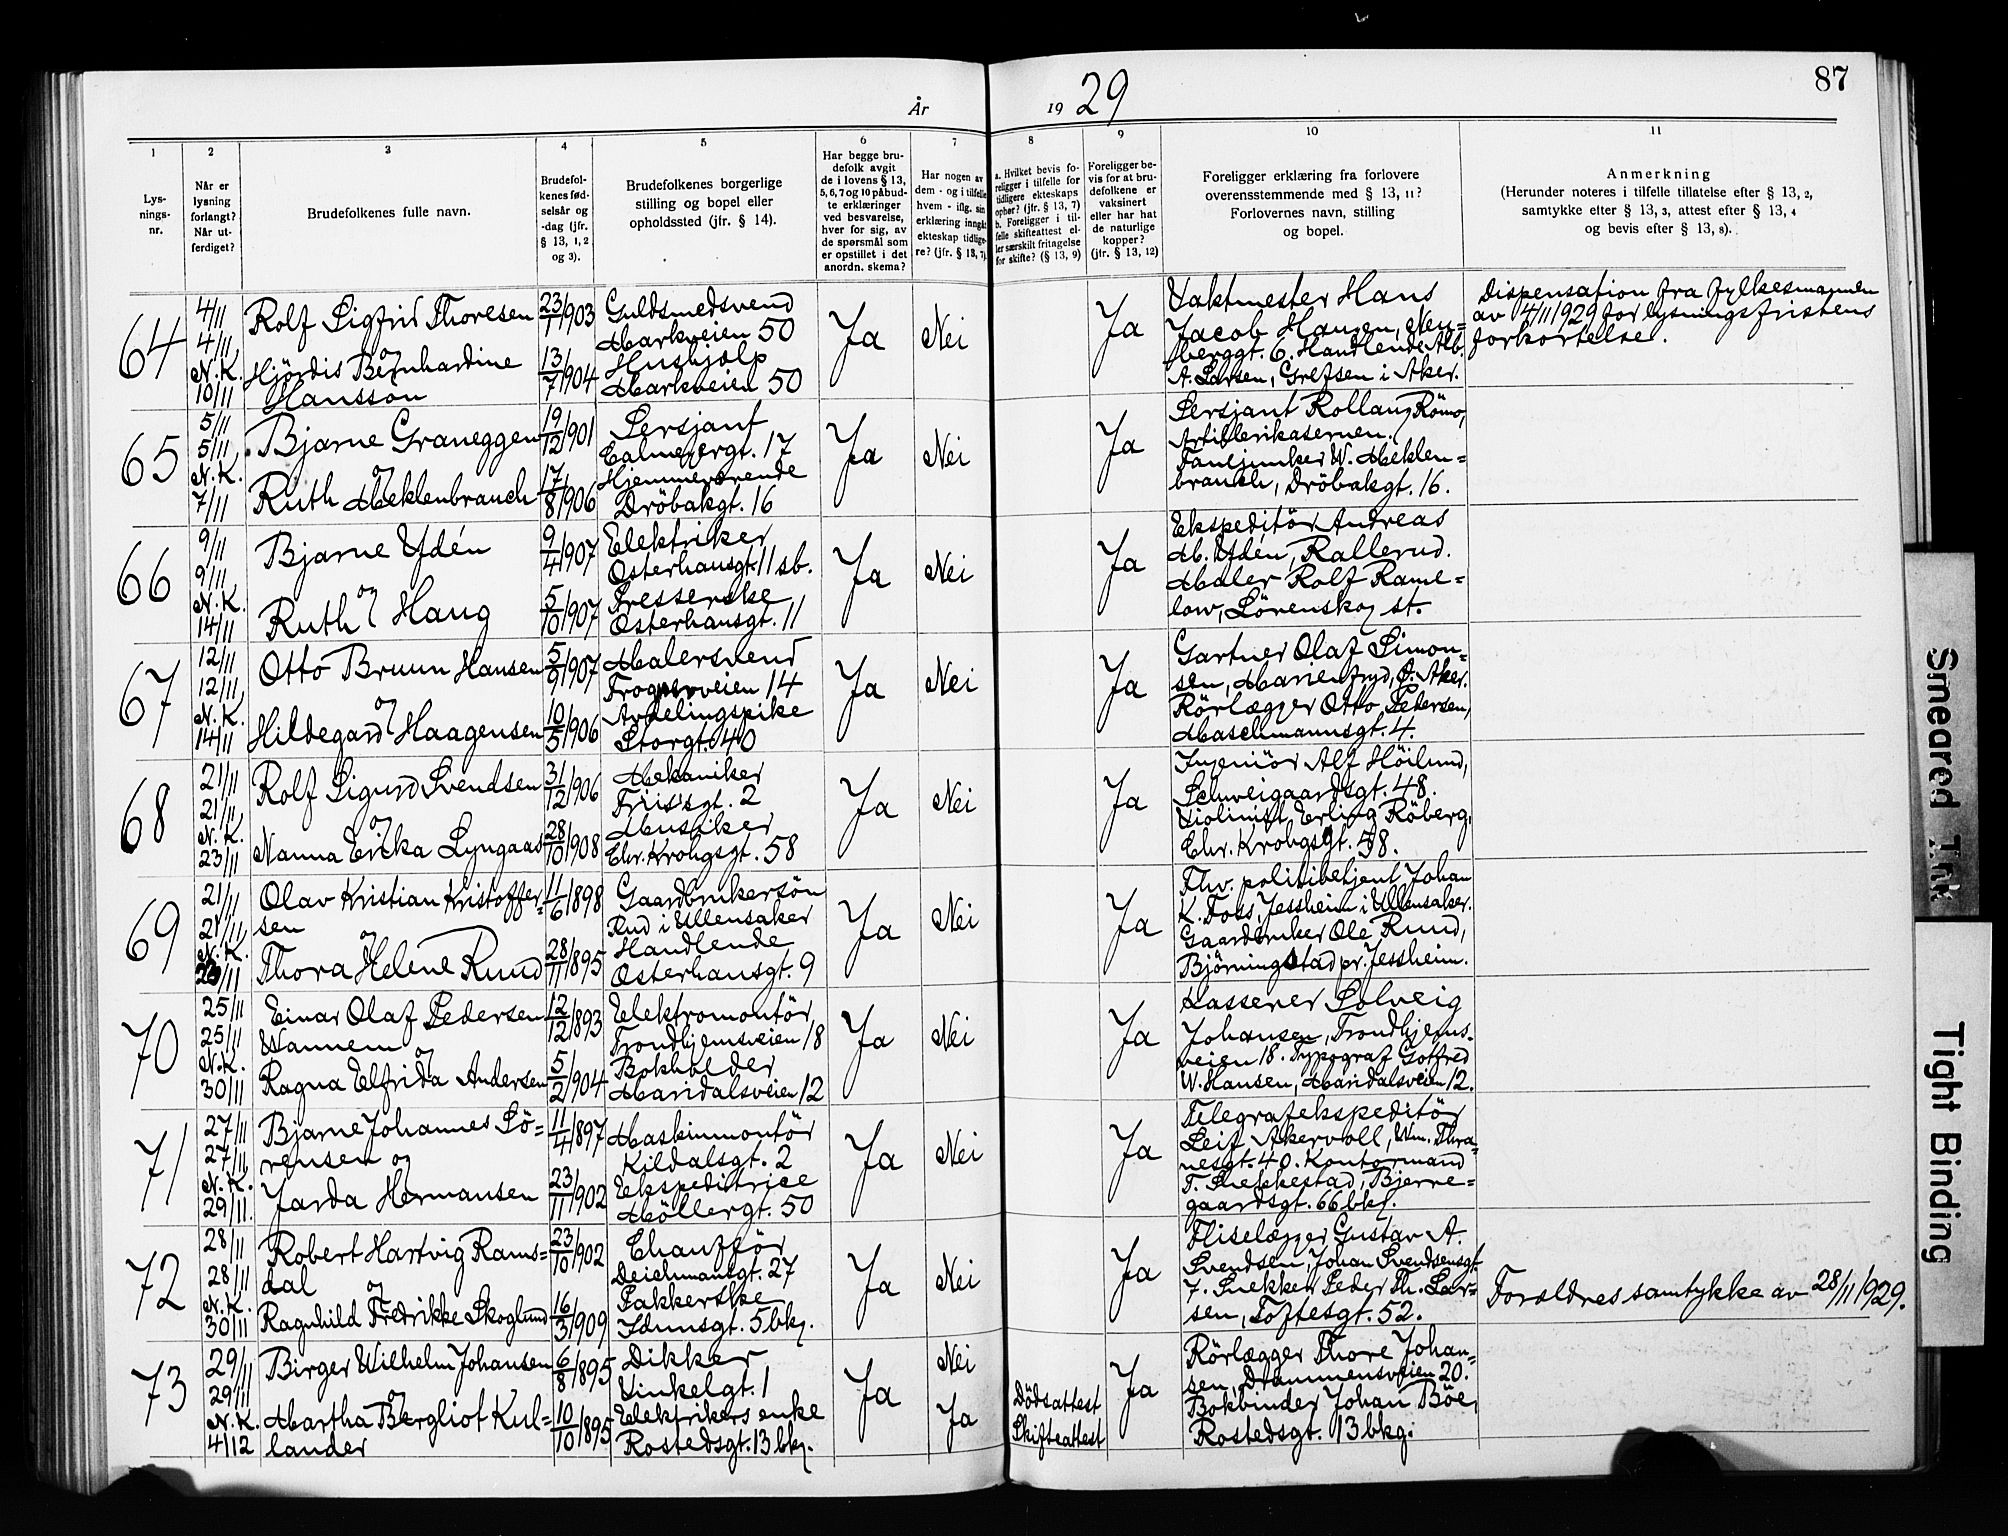 År 19 29
87
1
2
3
4
5
6
7
8
9
10
11
Lys-
nings-
nr.
Når er
lysning
forlangt?
Når ut-
ferdiget?
Brudefolkenes fulle navn.
Brudefol-
kenes fød-
selsår og
-dag (jfr.
§ 13, 1, 2
og 3).
Brudefolkenes borgerlige
stilling og bopel eller
opholdssted (jfr. § 14).
Har begge bru-
defolk avgit
de i lovens § 13,
5, 6, 7 og 10 påbud-
te erklæringer
ved besvarelse,
hver for sig, av
de spørsmål som
er opstillet i det
anordn. skema?
Har nogen av
dem - og i tilfelle
hvem - iflg. sin
erklæring inngåt
ekteskap tidlige-
re? (jfr. § 13, 7).
a. Hvilket bevis fo-
religger i tilfelle for
tidligere ekteskaps
ophør? (jfr. § 13, 7)
b. Foreligger i til-
felle skifteattest el-
ler særskilt fritagelse
for skifte? (§ 13, 9)
Foreligger be-
vis for at bru-
defolkene er
vaksinert
eller har hat
de naturlige
kopper?
(jfr. § 13, 12)
Foreligger erklæring fra forlovere
overensstemmende med § 13, 11?
Forlovernes navn, stilling
og bopel.
Anmerkning
(Herunder noteres i tilfelle tillatelse efter § 13, 2,
samtykke efter § 13, 3, attest efter § 13, 4
og bevis efter § 13, 8).
64
4/11
4/11
N.K.
10/11
Rolf Sigfrid Thoresen
og
Hjördis Bernhardine
Hansson
23/1 1903
13/7 1904
Guldsmedsvend
Markveien 50
Hushjelp
Markveien 50
Ja
Nei
Ja
Vaktmester Hans
Jacob Hansen, Neu-
berggt. 6. Handlende Alb.
A. Larsen, Grefsen i Aker.
Dispensation fra fylkesmannen
av 4/11 1929 for lysningsfristens
forkortelse.
65
5/11
5/11
N.K.
7/11
Bjarne Graneggen
og
Ruth Meklenbrauch
19/12 1901
17/8 1906
Sersjant
Calmeyergt. 17
Hjemmeværende
Dröbakgt. 16
Ja
Nei
Ja
Sersjant Rollaug Römo,
Artillerikasernen.
Fanejunker W. Meklen=
brauch, Dröbakgt. 16.
66
9/11
9/11
N.K.
14/11
Bjarne Ydén
og
Ruth Haug
9/4 1907
5/10 1907
Elektriker
Osterhausgt. 11 sb.
Presserske
Osterhausgt. 11
Ja
Nei
Ja
Ekspeditör Andreas
M. Ydén, Rallerud.
Maler Rolf Rame=
low, Lörenskog st.
67
12/11
12/11
N.K.
14/11
Otto Bruun Hansen
og
Hildegard Haagensen
5/9 1907
10/5 1906
Malersvend
Frognerveien 14
Avdelingspike
Storgt. 40
Ja
Nei
Ja
Gartner Olaf Simon=
sen, Marienfryd, Ö. Aker.
Rörlægger Otto Petersen,
Maschmannsgt. 4.
68
21/11
21/11
N.K.
23/11
Rolf Sigurd Svendsen
og
Nanna Ericka Lyngaas
31/12 1906
28/10 1908
Mekaniker
Friisgt. 2
Musiker
Chr. Krohgsgt. 58
Ja
Nei
Ja
Ingeniör Alf Höilund,
Schweigaardsgt. 48.
Violinist Erling Röberg,
Chr. Krohgsgt. 58.
69
21/11
21/11
N.K.
23/11
Olav Kristian Kristoffer-
sen
og
Thora Helene Ruud
11/6 1898
28/11 1895
Gaardbrukersön
Rud i Ullensaker
Handlende
Osterhausgt. 9
Ja
Nei
Ja
Fhv. politibetjent Johan
K. Foss, Jessheim i Ullensaker.
Gaardbruker Ole Ruud,
Björningstad pr. Jessheim.
70
25/11
25/11
N.K.
30/11
Einar Olaf Pedersen
Wannem
og
Ragna Elfrida Andersen
12/12 1893
5/2 1904
Elektromontör,
Trondhjemsveien 18
Bokholder
Maridalsveien 12
Ja
Nei
Ja
Kasserer Solveig
Johansen, Trondhjems-
veien 18. Typograf Gotfred
W. Hansen, Maridalsveien 12.
71
27/11
27/11
N.K.
29/11.
Bjarne Johannes Sö=
rensen og
Jarda Hermansen
11/4 1897
23/11 1902
Maskinmontör
Kildalsgt. 2
Ekspeditrice
Möllergt. 50
Ja
Nei
Ja
Telegrafekspeditör
Leif Akervoll, Wm. Thra-
nesgt. 40. Kontormand
T. Snekkestad, Bjerre=
gaardsgt. 66 bkg.
72
28/11
28/11
N.K.
30/11
Robert Hartvig Rams=
dal
og
Ragnhild Fredrikke Skoglund
23/10 1902
16/3 1909
Chaufför
Deichmansgt. 27
Pakkerske
Idunsgt. 5 bkg.
Ja
Nei
Ja
Fliselægger Gustav A.
Svendsen, Johan Svendsensgt.
7. Snekker Peder Th. Lar-
sen, Toftesgt. 52.
Forældres samtykke av 28/11 1929.
73
29/11
29/11
N.K.
4/12
Birger Wilhelm Johansen
og
Martha Bergliot Kul=
lander
6/8 1895
10/10 1895
Dikker
Vinkelgt. 1
Elektrikers enke
Rostedsgt. 13 bkg.
Ja
Nei
Ja
Dödsattest
Skifteattest
Ja
Rörlægger Thore Johan-
sen, Drammensveien 20.
Bokbinder Johan Böe,
Rostedsgt. 13 bkg.
Smeared Ink
Tight Binding